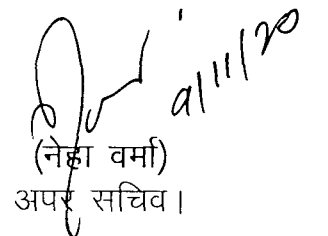 9/11/20
(नेहा वर्मा)
अपर सचिव।